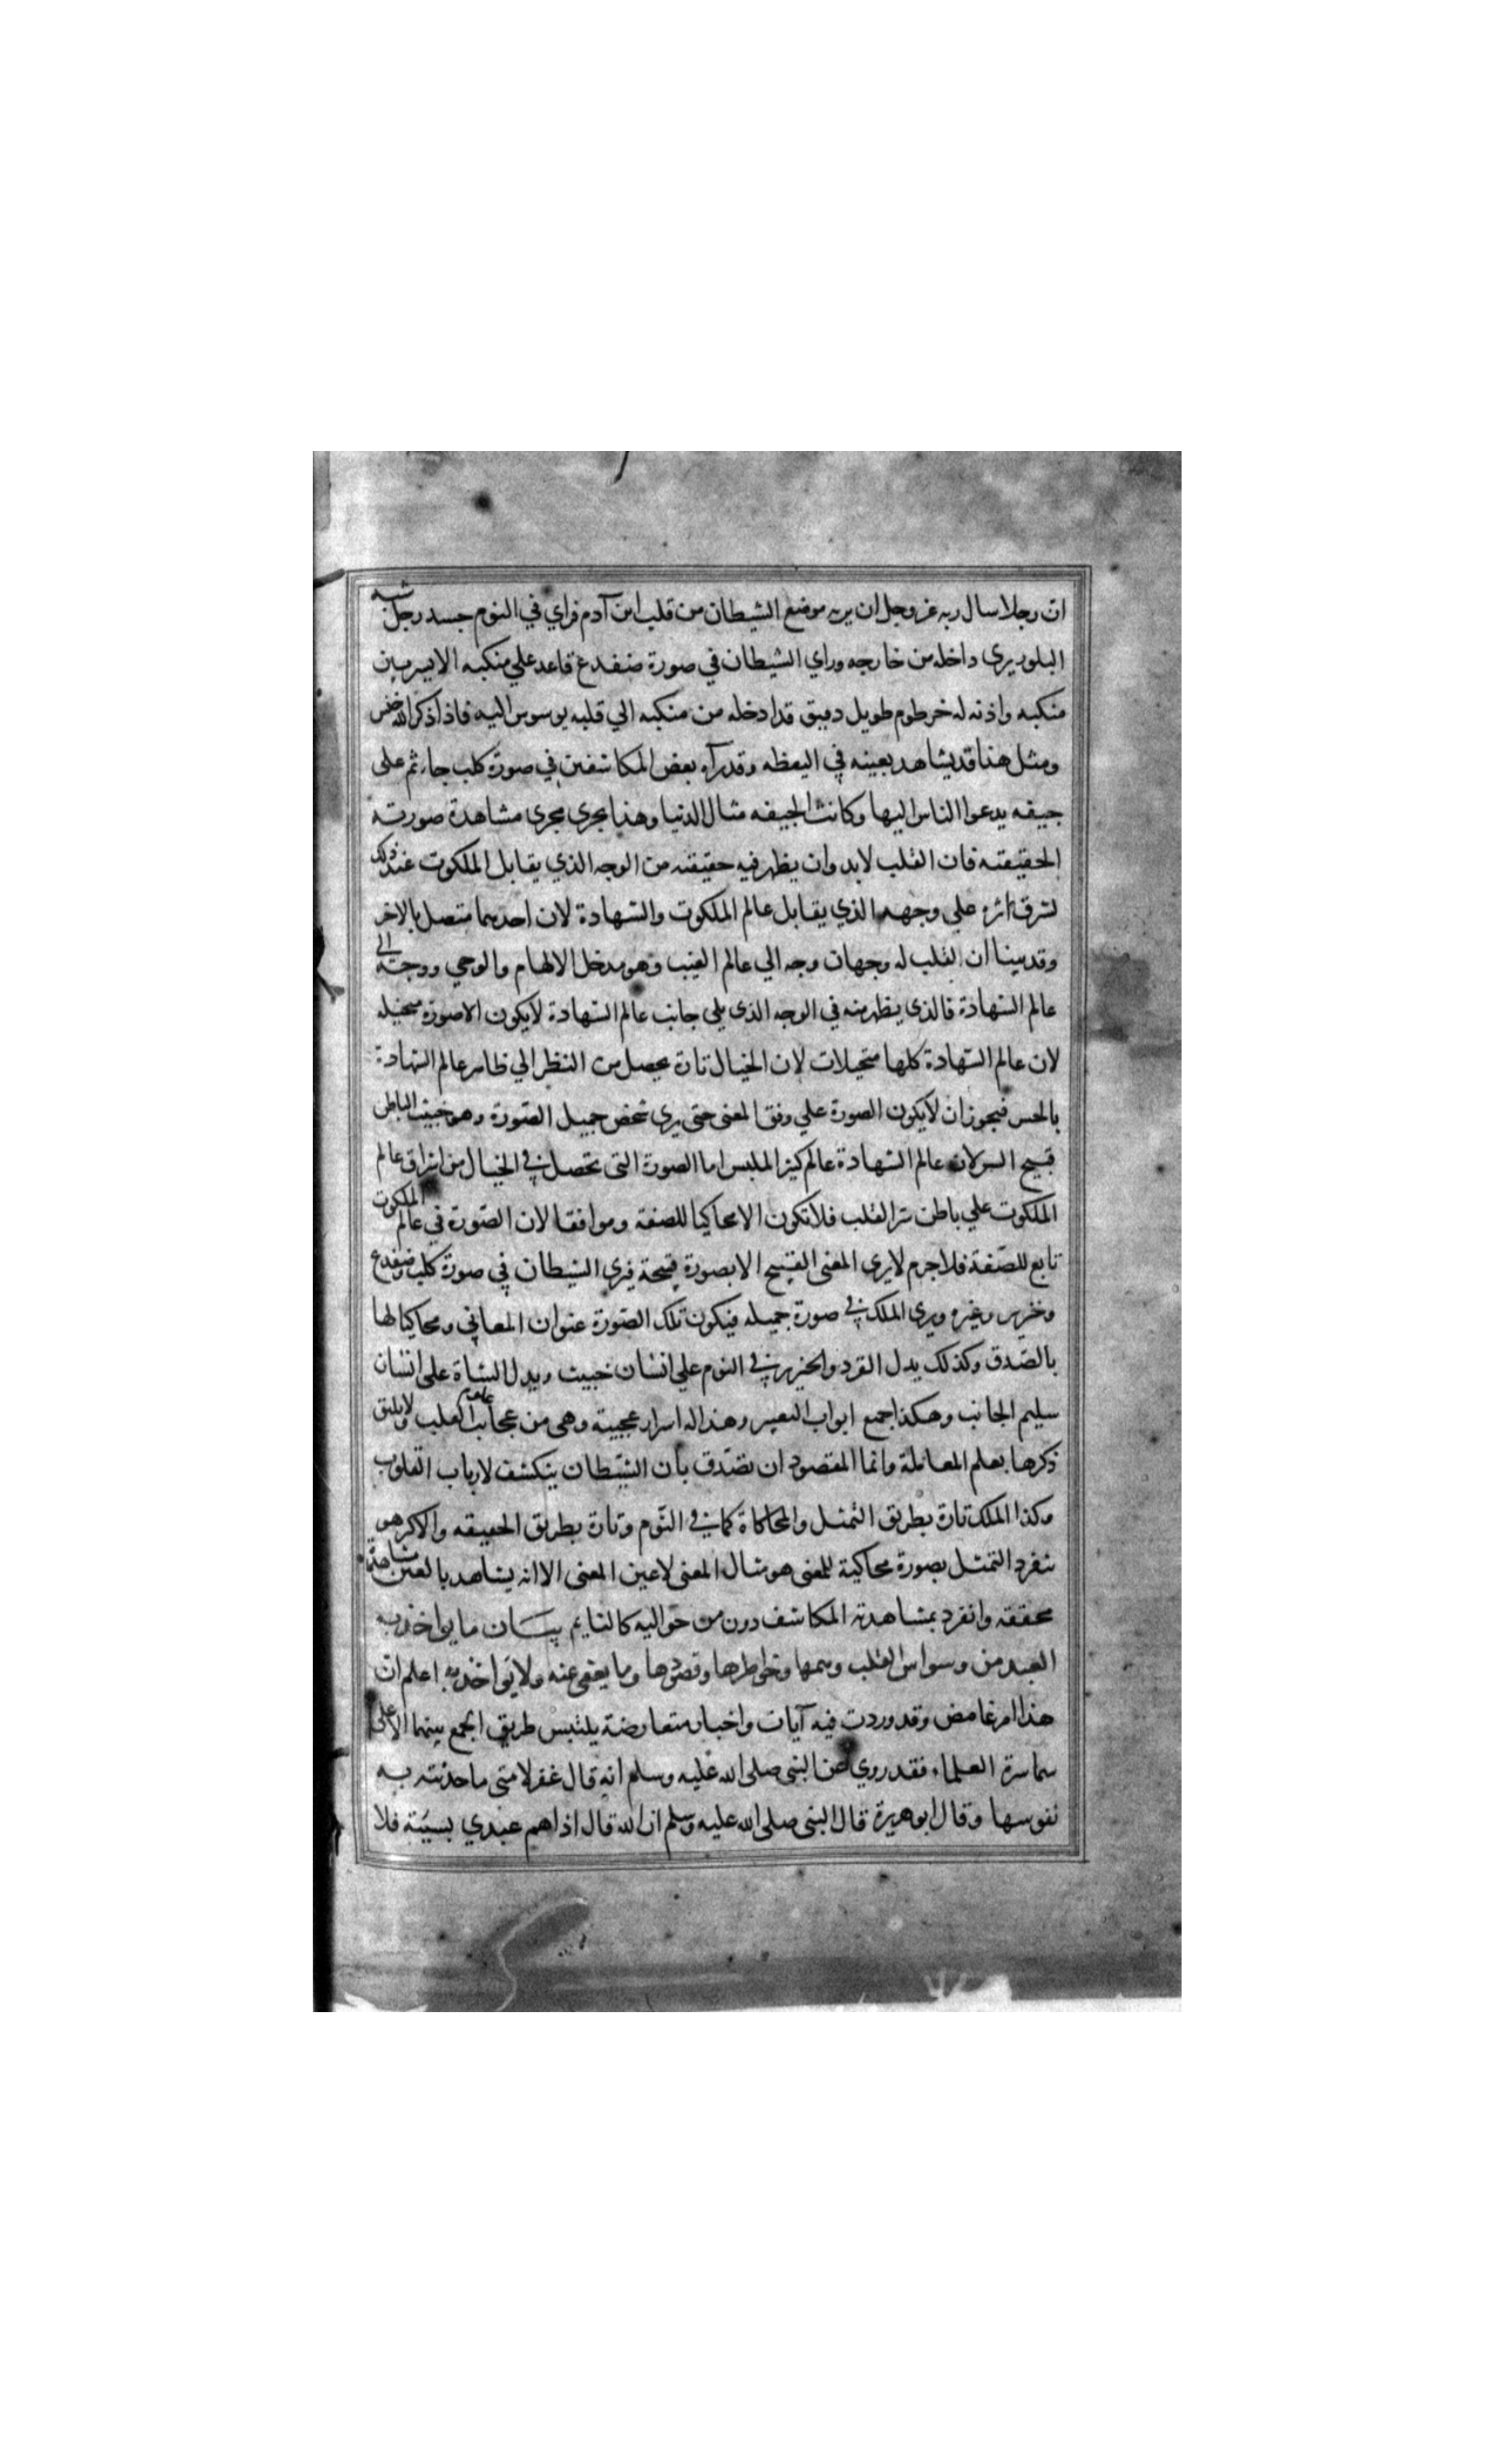 ان رجلا سال ربه عز وجل ان يريه موضع الشيطان من قلب ابن آدم فراي في النوم جسد رجل شبه
البلور يرى داخله من خارجه وراي الشيطان في صورة ضفدع قاعد علي منكبه الايسر بين
منكبه واذنه له خرطوم طويل دقيق قد ادخله من منكبه الي قلبه يوسوس اليه فاذا ذكر الله خنس
ومثل هذا قد يشاهد بعينه في اليقظه وقد رآه بعض المكاشفين في صورة كلب جاثم على
جيفه يدعوا الناس اليها وكانت الجيفه مثال الدنيا وهذا يجري مجرى مشاهدة صورته
الحقيقته فان القلب لابد وان يظهر فيه حقيقته من الوجه الذي يقابل الملكوت عند ذلك
لشرق اثره علي وجهه الذي يقابل عالم الملكوت والشهادة لان احدهما متصل بالاخر
وقد بينا ان القلب له وجهان وجه الي عالم الغيب وهو مدخل الالهام والوحي ووجه الى
عالم الشهادة فالذي يظهر منه في الوجه الذى يلي جانب عالم الشهادة لايكون الا صورة متخيله
لان عالم الشهادة كلها متخيلات لان الخيال تارة يحصل من النظر الي ظاهر عالم الشهادة
بالحس فيجوز ان لايكون الصورة علي وفق المعنى حتى يرى شخص جميل الصورة وهو خبيث الباطن
قبيح السر لان عالم الشهادة عالم كثير الملبس اما الصورة التى تحصل في الخيال من اشراق عالم
الملكوت علي باطن سر القلب فلا تكون الا محاكيا للصفة وموافقا لان الصورة في عالم الملكوت
تابع للصفة فلا جرم لايرى المعنى القبيح الا بصورة قبيحة فيرى الشيطان في صورة كلب وضفدع
وخنزير وغيره ويرى الملك في صورة جميله فيكون تلك الصورة عنوان المعاني ومحاكيا لها
بالصدق وكذلك يدل القرد والخنزير في النوم علي انسان خبيث ويدل الشاة على انسان
سليم الجانب وهكذا جمع ابواب التعبير وهذا له اسرار عجيبة وهى من عجائب القلب ولايليق
ذكرها بعلم المعاملة وانما المقصود ان تصدق بان الشيطان ينكشف لارباب القلوب
وكذا الملك تارة بطريق التمثل والمحاكاة كما في النوم وتارة بطريق الحقيقه والاكثر هو
التمثل بصورة محاكية للمعنى هو مثال المعنى لا عين المعنى الا انه يشاهد بالعين مشاهدة
محققة وانفرد بمشاهدته المكاشف دون من حواليه كالنايم بيان ما يواخذ به
العبد من وسواس القلب وهمها وخواطرها وقصدها وما يعفى عنه ولا يواخذ به اعلم ان
هذا امر غامض وقد وردت فيه آيات واخبار متعارضة يلتبس طريق الجمع بينهما الا على
سماسرة العلماء فقد روي عن النبى صلى الله عليه وسلم انه قال غفر لامتى ما حدثته به
نفوسها وقال ابو هريرة قال النبى صلى الله عليه وسلم ان الله قال اذا هم عبدي بسيئة فلا